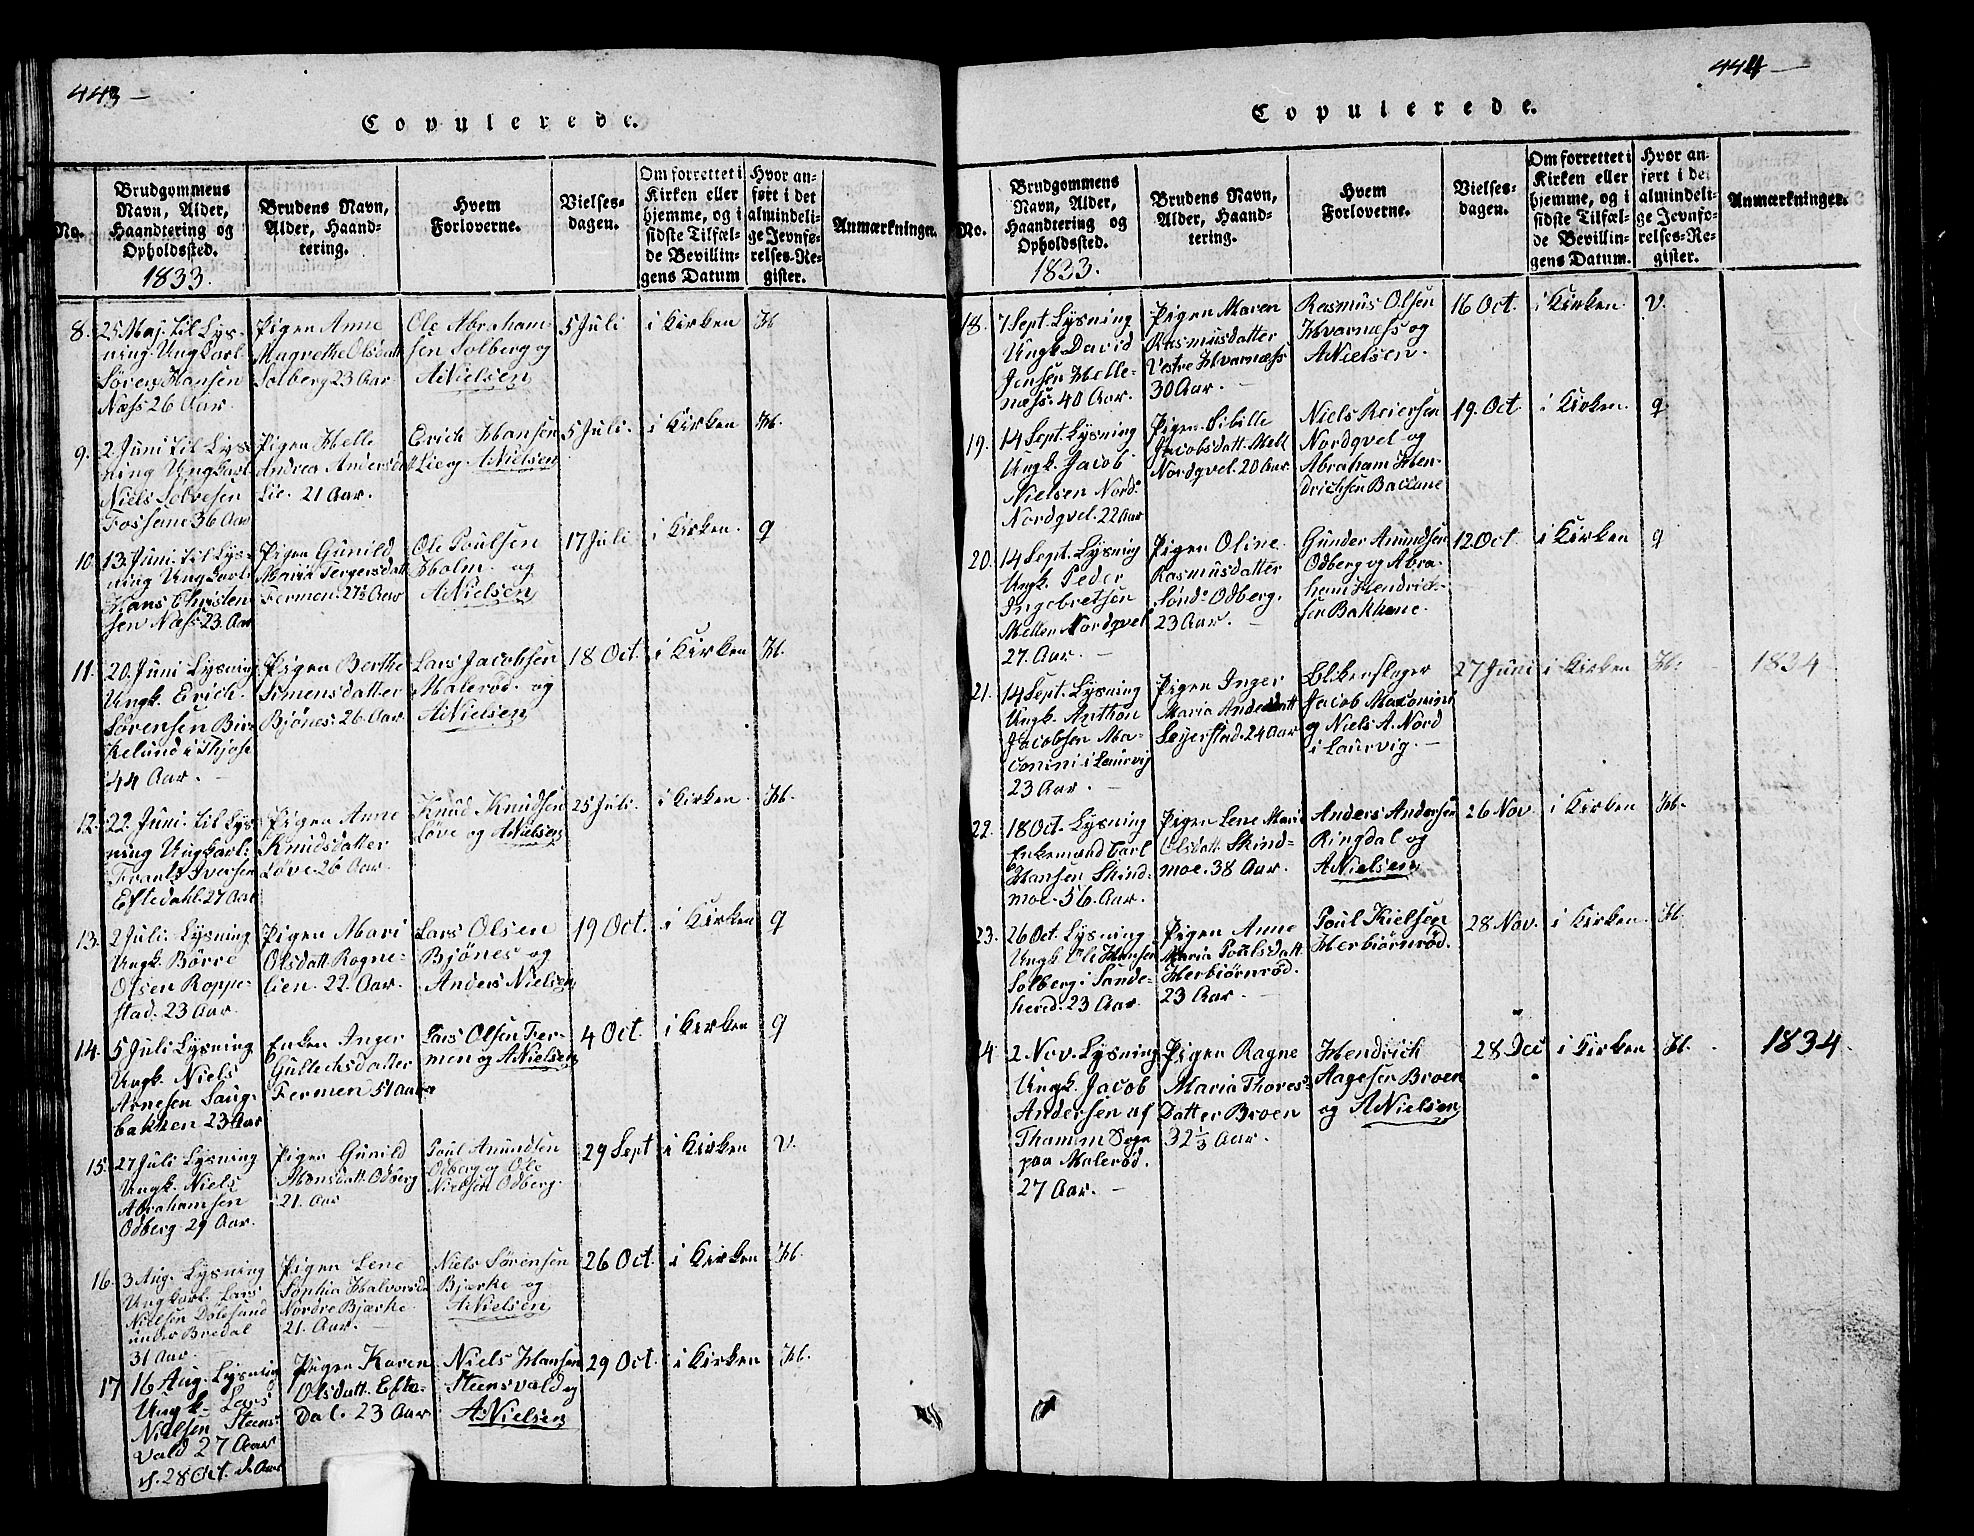 443 —
Copulerede.
No.
Brudgommens
Navn, Alder,
Haandtering og
Opholdssted.
1833.
Brudens Navn,
Alder, Haand-
tering.
Hvem
Forloverne.
Vielses-
dagen.
Om forrettet i
Kirken eller
hjemme, og i
sidste Tilfæl-
de Bevillin-
gens Datum
Hvor an-
ført i det
almindeli-
ge Jevnfø-
relses-Re-
gister.
Anmærkninger.
8.
25 Maj. til Lys-
ning. Ungkarl
Sören Hansen
Næss 26 Aar.
Pigen Anne
Magrethe Olsdatt
Solberg 23 Aar
Ole Abraham-
sen Solberg og
A.Nielsen
5 Juli
i Kirken
H
9.
2 Juni til Lys-
ning Ungkarl
Niels Solvesen
Fossene 36 Aar
Pigen Helle
Andrea Andersdatt
Lie. 21 Aar.
Erich Hansen
Lie og A.Nielsen
5 Juli.
i Kirken
H.
10.
13. Juni. til Lys-
ning Ungkarl
Hans Christen
sen Næss 23. Aar
Pigen Gunild
Maria Tergersdatt
Fermen. 27½ Aar
Ole Poulsen
Holm. og
A.Nielsen
17 Juli
i Kirken.
q
11.
20. Juni Lysning
Ungk. Erich
Sörensen Bir-
kelund i Thjose
44 Aar. —
Pigen Berthe
Simensdatter
Bjönes. 26 Aar
Lars Jacobsen
Malerød. og
A.Nielsen
18 Oct.
i Kirken
H.
12.
22. Juni. til Lys
ning Ungkarl.
Frants Iversen
Eftedahl. 27 Aar
Pigen Anne
Knudsdatter
Løve 26 Aar.
Knud Knudsen
Løve og A.Nielsen
25 Juli.
i Kirken.
H.
13.
2 Juli. Lysning
Ungk. Börre
Olsen Roppe-
stad. 23 Aar.
Pigen Mari
Olsdatt Ragne-
lien. 22. Aar.
Lars Olsen
Bjönes og
Anders Nielsen
19 Oct.
i Kirken
q
14.
5 Juli Lysning
Ungk. Niels
Arnesen Saug-
bakken 23 Aar
Enken Inger
Gullechsdatter
Fermen 51 Aar
Lars Olsen Fer-
men og A.Nielsen
4 Oct.
i Kirken
q
15.
27 Juli Lysning
Ungk. Niels
Abrahamsen
Odberg 29 Aar.
Pigen Gunild
Monsdatt. Odberg
21. Aar
Poul Amundsen
Odberg og Ole
Nielsen Odberg.
29 Sept
i Kirken
V.
16.
3 Aug. Lysning
Ungkarl. Lars
Nielsen Dölesund
under Bredal
31 Aar.
Pigen Lene
Sophia Halvorsd.
Nordre Bjerke.
21. Aar.
Niels Sörensen
Bjerke og
A.Nielsen
26 Oct.
i Kirken
H.
17
16 Aug. Lysning
Ungk. Lars
Nielsen Steens
vald 27 Aar
Pigen Karen
Olsdatt. Efte-
dal. 23 Aar
Niels Hansen
Steensvald og
A.Nielsen
29 Oct.
i Kirken
H.
444 —
Copulerede.
No.
Brudgommens
Navn, Alder,
Haandtering og
Opholdssted.
1833.
Brudens Navn,
Alder, Haand-
tering.
Hvem
Forloverne.
Vielses-
dagen.
Om forrettet i
Kirken eller
hjemme, og i
sidste Tilfæl-
de Bevillin-
gens Datum.
Hvor an-
ført i det
almindeli-
ge Jevnfø-
relses-Re-
gister.
Anmærkninger.
18.
7 Sept. Lysning
Ungk David
Jensen Helle-
næss. 40 Aar.
Pigen Maren
Rasmusdatter
Vestre Hvarnæss
30 Aar. —
Rasmus Olsen
Hvarnæss og
A.Nielsen.
16 Oct.
i Kirken
V.
19.
14 Sept. Lysning
Ungk. Jacob
Nielsen Nord.
Nordqvel. 22 Aar
Pigen Sibille
Jacobsdatt. Mell
Nordqvel. 20 Aar
Niels Reiersen
Nordqvel og
Abraham Hen-
drichsen Baccane
19. Oct
i Kirken.
q
20.
14 Sept. Lysning
Ungk. Peder
Ingebretsen
Mellem Nordqvel
27. Aar. —
Pigen Oline
Rasmusdatter
Sønd. Odberg.
23 Aar.
Gunder Amundsen
Odberg og Abra-
ham Hendrich-
sen Bakkene.
12 Oct.
i Kirken
q
21.
14 Sept. Lysning
Ungk. Anthon
Jacobsen Ma-
conini i Laurvig
23 Aar. —
Pigen Inger
Maria Andersdatt
Sejerstad. 24 Aar
Blikenslager
Jacob Maconini
og Niels A. Nord
i Laurvig. —
27 Juni
i Kirken
H.
1834
22.
18 Oct. Lysning
Enkemand Carl
Hansen Skind-
moe. 56. Aar.
Pigen Lene Mari
Olsdatt. Skind-
moe. 38 Aar.
Anders Andersen
Ringdal og
A.Nielsen
26 Nov
i Kirken
H.
23.
26 Oct. Lysning
Ungk. Ole Hansen
Solberg i Sande-
hered. 23 Aar
Pigen Anne
Maria Poulsdatt
Herbiörnröd.
23 Aar. —
Poul Kielsen
Herbiörnröd.
28 Nov.
i Kirken.
H.
24.
2 Nov. Lysning
Ungk. Jacob
Andersen af
Thamm Sogn
paa Malerød.
27 Aar. —
Pigen Ragne
Maria Thores-
Datter Broen
32⅓ Aar.
Hendrich
Aagesen Broen
og A.Nielsen
28 Dec
i Kirken
H.
1834.